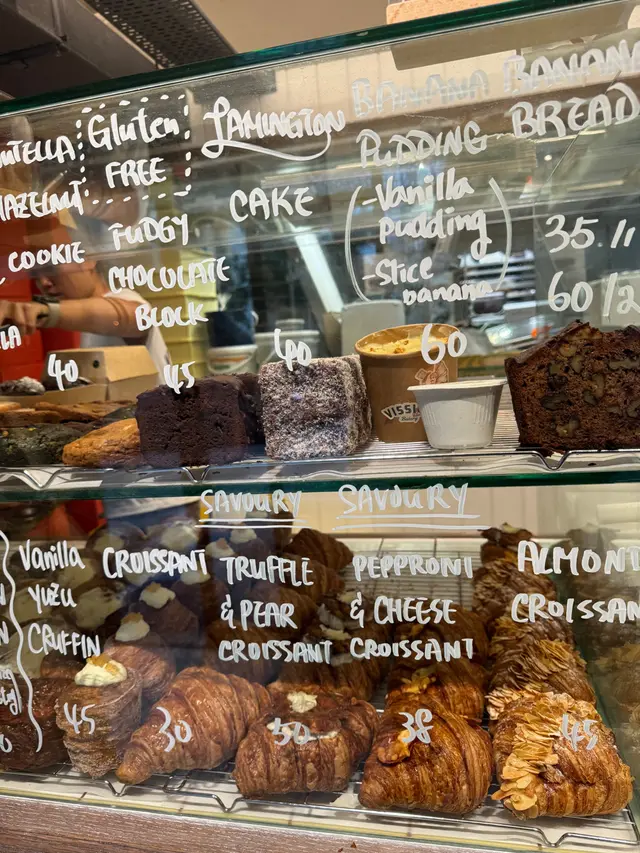 Gluten
FREE
FUDGY
CHOCOLATE
BLOCK
45
HAZELNUT
COOKIE
40
LAMINGTON
CAKE
40
BANANA
PUDDING
-Vanilla
pudding
-Slice
banana
60
BANANA
BREAD
35.//
60/2
Vanilla
YUZU
CRUFFIN
45
CROISSANT
30
SAVOURY
TRUFFLE
& PEAR
CROISSANT
50
SAVOURY
PEPPRONI
& CHEESE
CROISSANT
38
ALMOND
CROISSAN
45